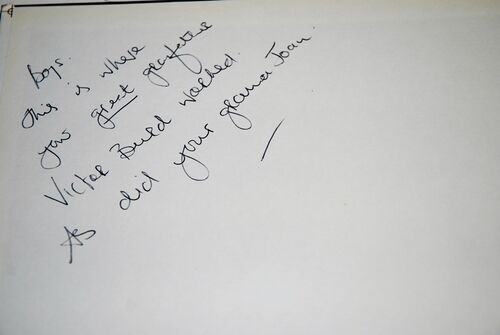 Boys.
This is where
your great grandfather
Victor Burd worked.
As did your grama Joan.